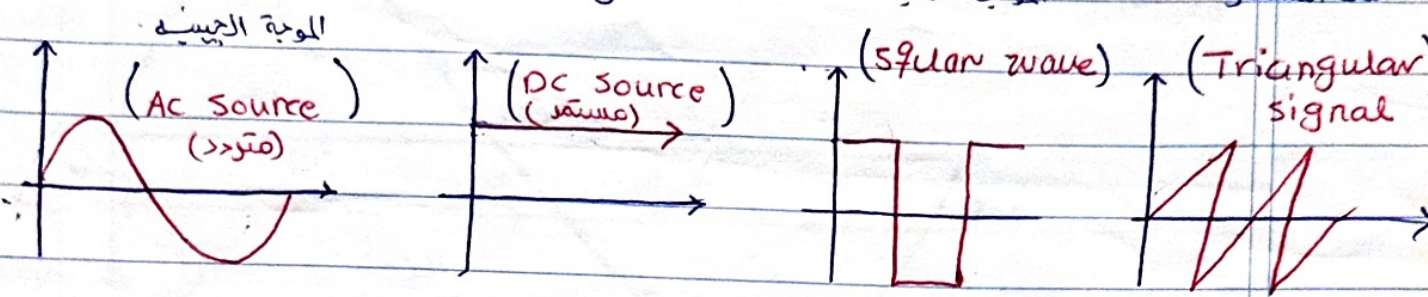 الموجة الجيبية
(AC Source)
(متردد)
(DC Source)
(مستمر)
(squar wave)
(Triangular
signal